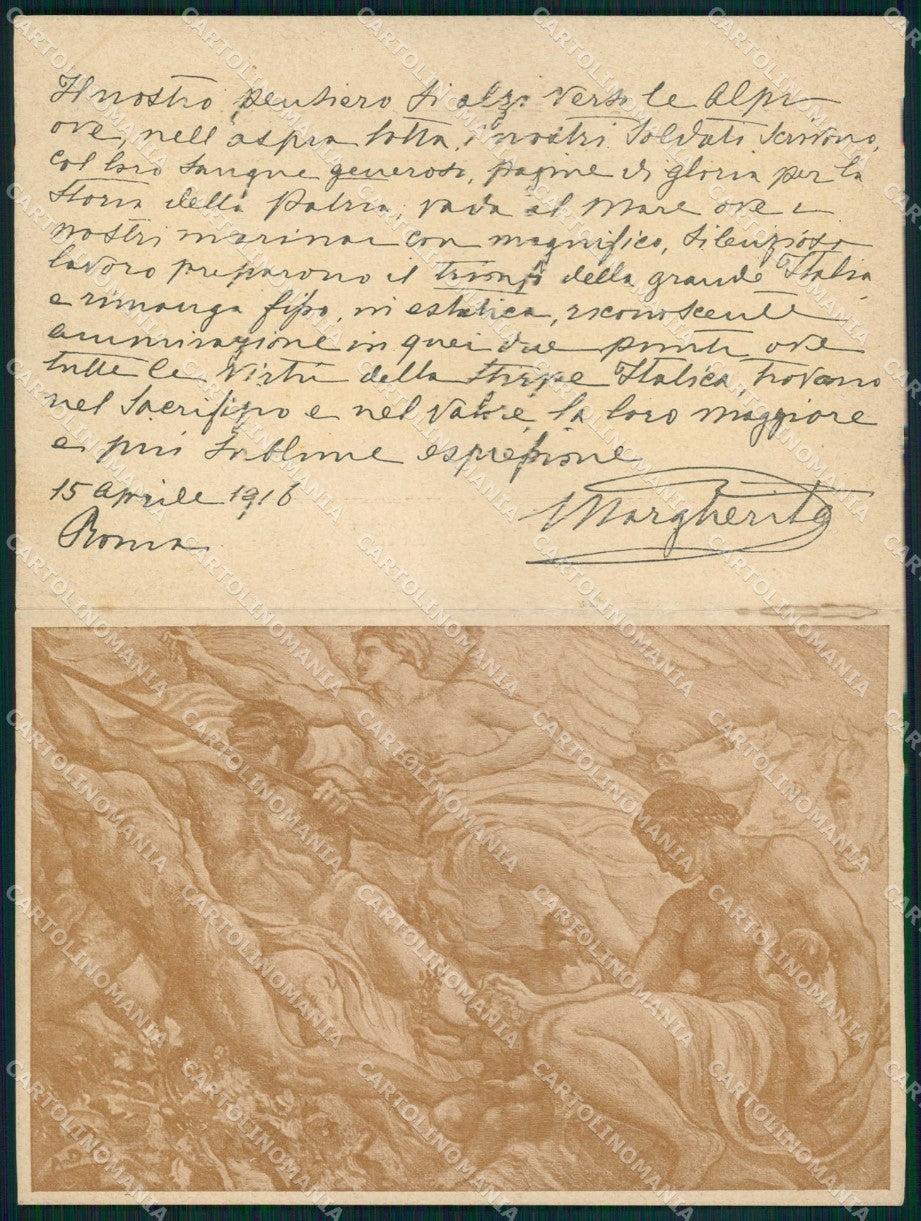 Il nostro pensiero si alzi verso le Alpi
ove, nell'aspra lotta, i nostri Soldati scrivono,
col loro sangue generoso, pagine di gloria per la
Storia della Patria, vada al Mare ove i
nostri marinai con magnifico, silenzioso
lavoro preparono il trionfo della grande Italia,
e rimanga fisso, in estatica, riconoscente
ammirazione in quei due punti, ove
tutte le Virtù della Stirpe Italica, trovano
nel Sacrifizio e nel Valore, la loro maggiore
e più sublime espressione
15 Aprile 1916
Margherita
Roma
CARTOLINOMANIA